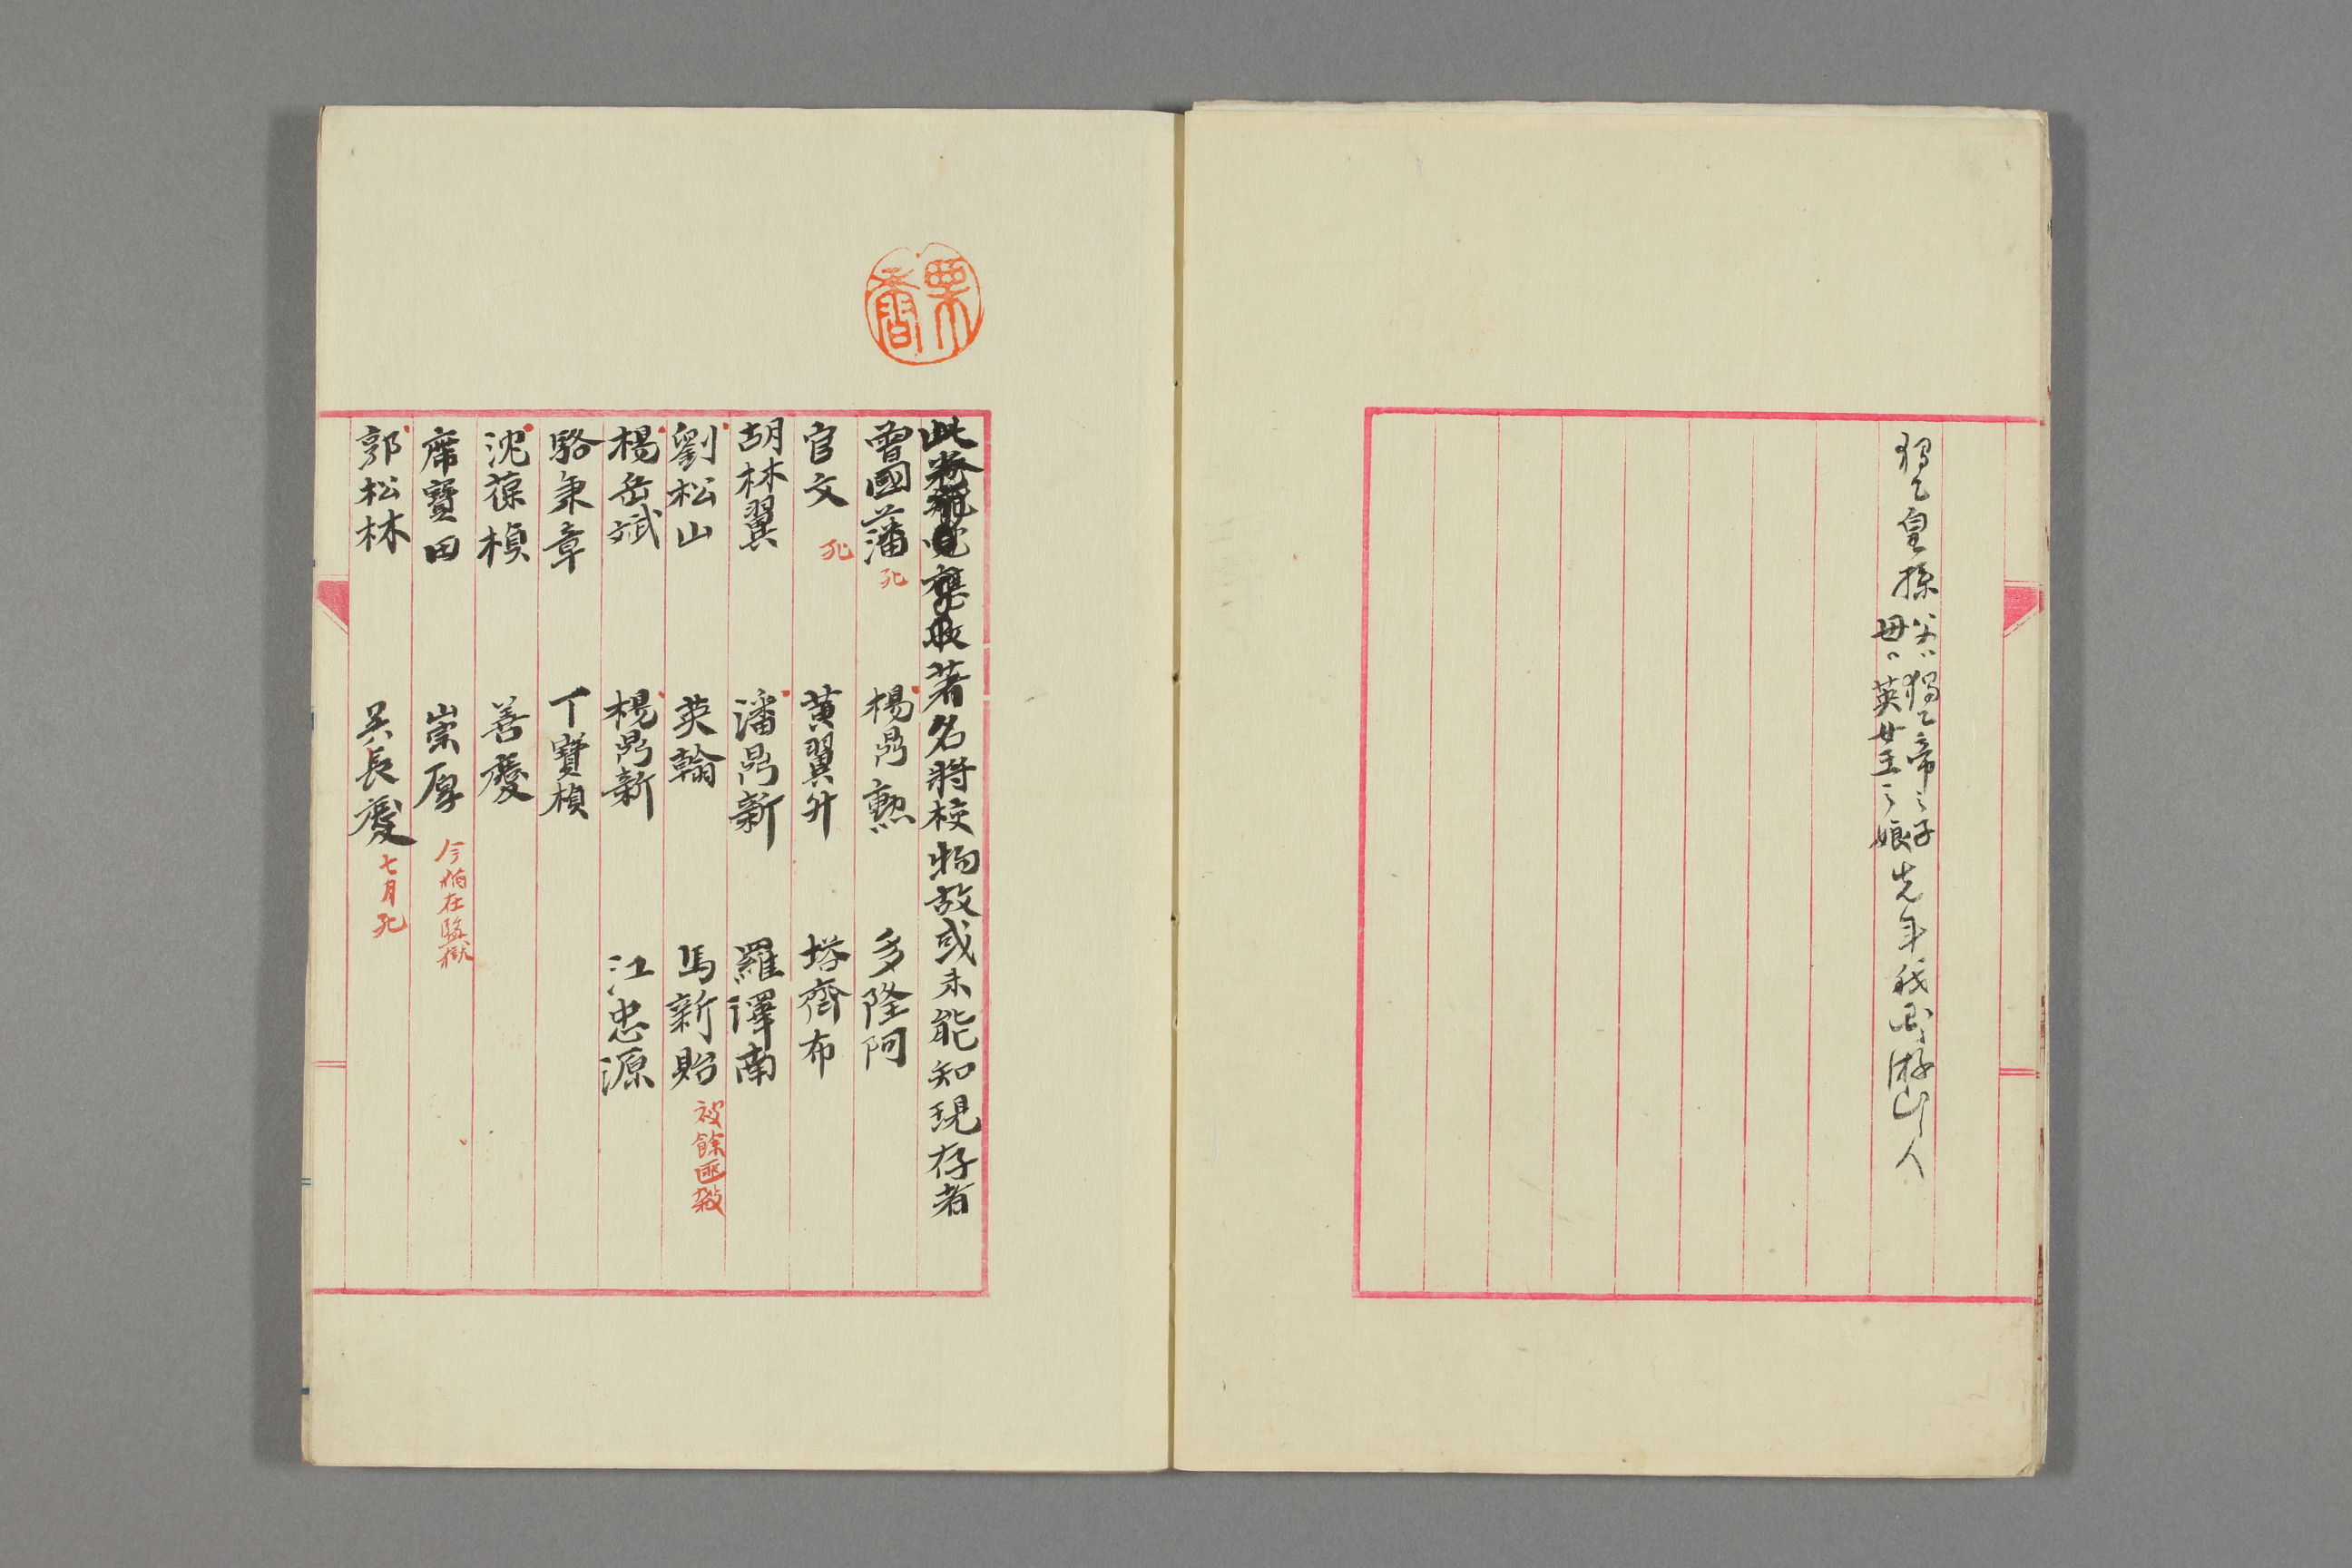 獨乙皇孫
父ハ獨乙帝之子
母ハ英女王之娘
先年我國ヘ游ノ人
栗香
著名將校物故或未能知現存者
曾國藩 死 楊鼎勲 多隆阿
官文 死 黄翼升 塔齊布
胡林翼 潘鼎新 羅澤南
劉松山 英翰 馬新貽 被餘匪殺
楊岳斌 楊鼎新 江忠源
駱秉章 丁寶楨
沈葆楨 善慶
席寶田 崇厚 今猶在監獄
郭松林 吳長慶 七月死